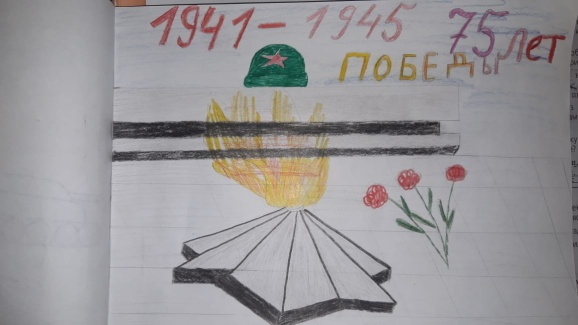 1941-1945 75 лет
ПОБЕДЫ